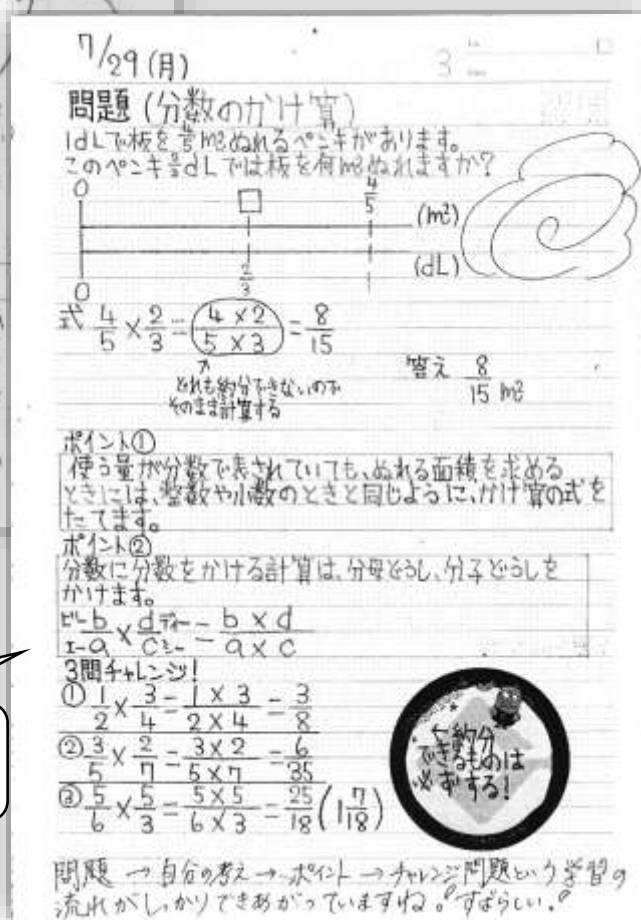 7/29(月)
問題(分数のかけ算)
1dLで板を4/5m²ぬれるペンキがあります。
このペンキ2/3dLでは板を何m²ぬれますか?
0 □ 4/5 (m²)
0 2/3 1 (dL)
式 4/5 × 2/3 = (4×2)/(5×3) = 8/15
どれも約分できないので
そのまま計算する
答え 8/15 m²
ポイント①
使う量が分数で表されていても、ぬれる面積を求める
ときには、整数や小数のときと同じように、かけ算の式を
たてます。
ポイント②
分数に分数をかける計算は、分母どうし、分子どうしを
かけます。
ビー b/a エー × ディー d/c シー = (b×d)/(a×c)
3問チャレンジ!
① 1/2 × 3/4 = (1×3)/(2×4) = 3/8
② 3/5 × 2/7 = (3×2)/(5×7) = 6/35
③ 5/6 × 5/3 = (5×5)/(6×3) = 25/18 (1 7/18)
←約分
できるものは
必ずする!
問題→自分の考え→ポイント→チャレンジ問題という学習の
流れがしっかりできあがっていますね。すばらしい。